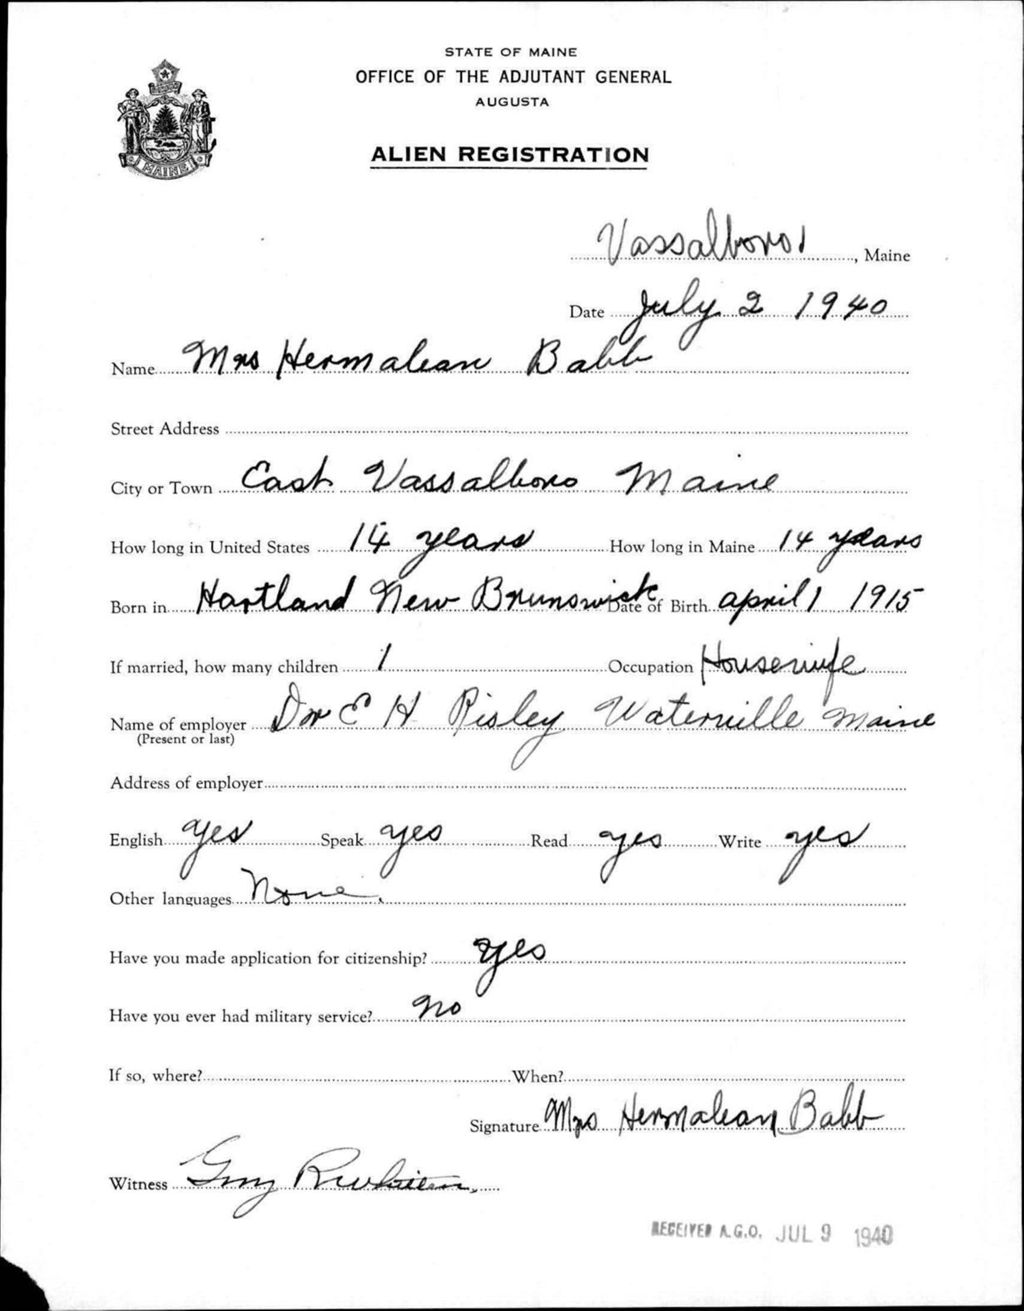 STATE OF MAINE
OFFICE OF THE ADJUTANT GENERAL
AUGUSTA
MAINE
ALIEN REGISTRATION
Vassalboro, Maine
Date July 2 1940
Name Mrs Hermalean Babb
Street Address
City or Town East Vassalboro Maine
How long in United States 14 years How long in Maine 14 years
Born in Hartland New Brunswick Date of Birth april 1 1915
If married, how many children 1 Occupation Housewife
Name of employer Dr E H Risley Waterville Maine
(Present or last)
Address of employer
English yes Speak yes Read yes Write yes
Other languages None.
Have you made application for citizenship? yes
Have you ever had military service? no
If so, where? When?
Signature Mrs Hermalean Babb
Witness Guy
RECEIVED A.G.O. JUL 9 1940